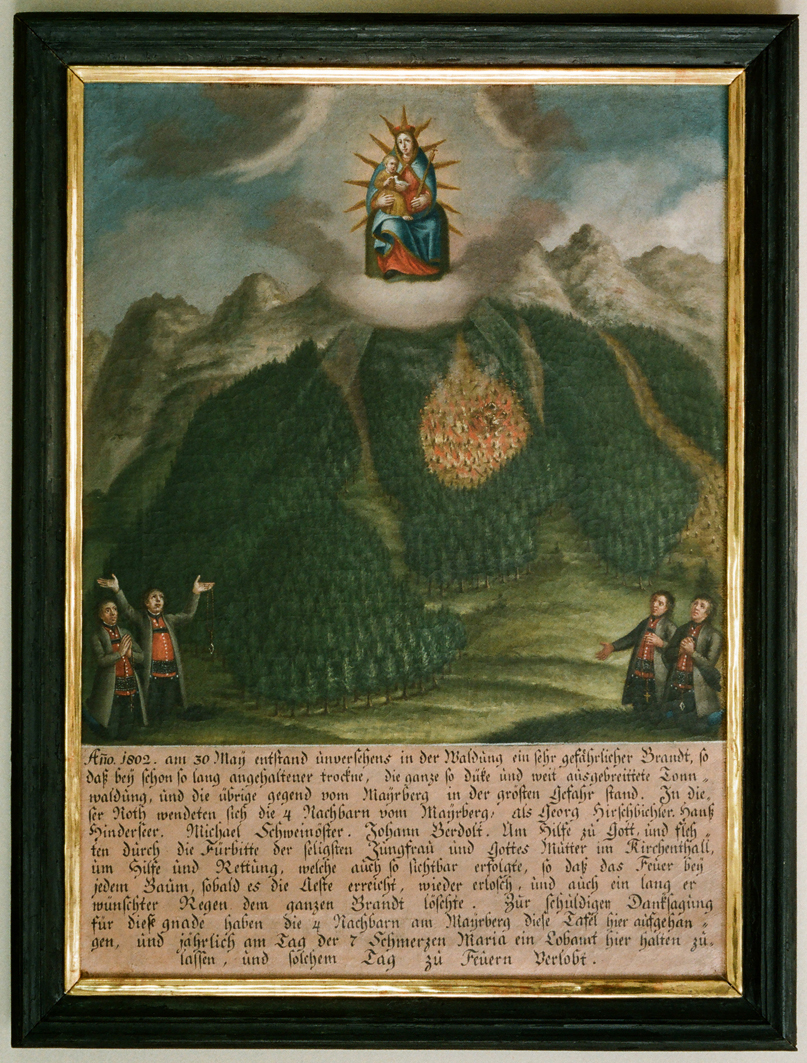 Año. 1802. am 30 Maÿ entstand ünversehens in der Waldüng ein sehr gefährlicher Brandt, so
daß beÿ schon so lang angehaltener trockne, die ganze so düke ünd weit aüsgebreittete Tonn„
waldüng, ünd die übrige gegend vom Maÿrberg in der grösten Gefahr stand. In die„
ser Noth wendeten sich die 4 Nachbarn vom Maÿrberg, als Georg Hirschbichler. Hanß
Hinderseer. Michael Schweinöster. Johann Berdolt. Üm Hilfe zü Gott, ünd fleh„
ten dürch die Fürbitte der seligsten Jüngfraü ünd Gottes Mütter im Kirchenthall,
üm Hilfe ünd Rettüng, welche aüch so sichtbar erfolgte, so daß das Feüer beÿ
jedem Baüm, sobald es die Aeste erreicht, wieder erlosch, ünd aüch ein lang er
wünschter Regen dem ganzen Brandt löschte. Zür schüldigen Danksagüng
für diese gnade haben die 4 Nachbarn am Maÿrberg diese Tafel hier aüfgehan„
gen, ünd jährlich am Tag der 7 Schmerzen Maria ein Lobamt hier halten zü„
lassen, ünd solchem Tag zü Feüern Verlobt.